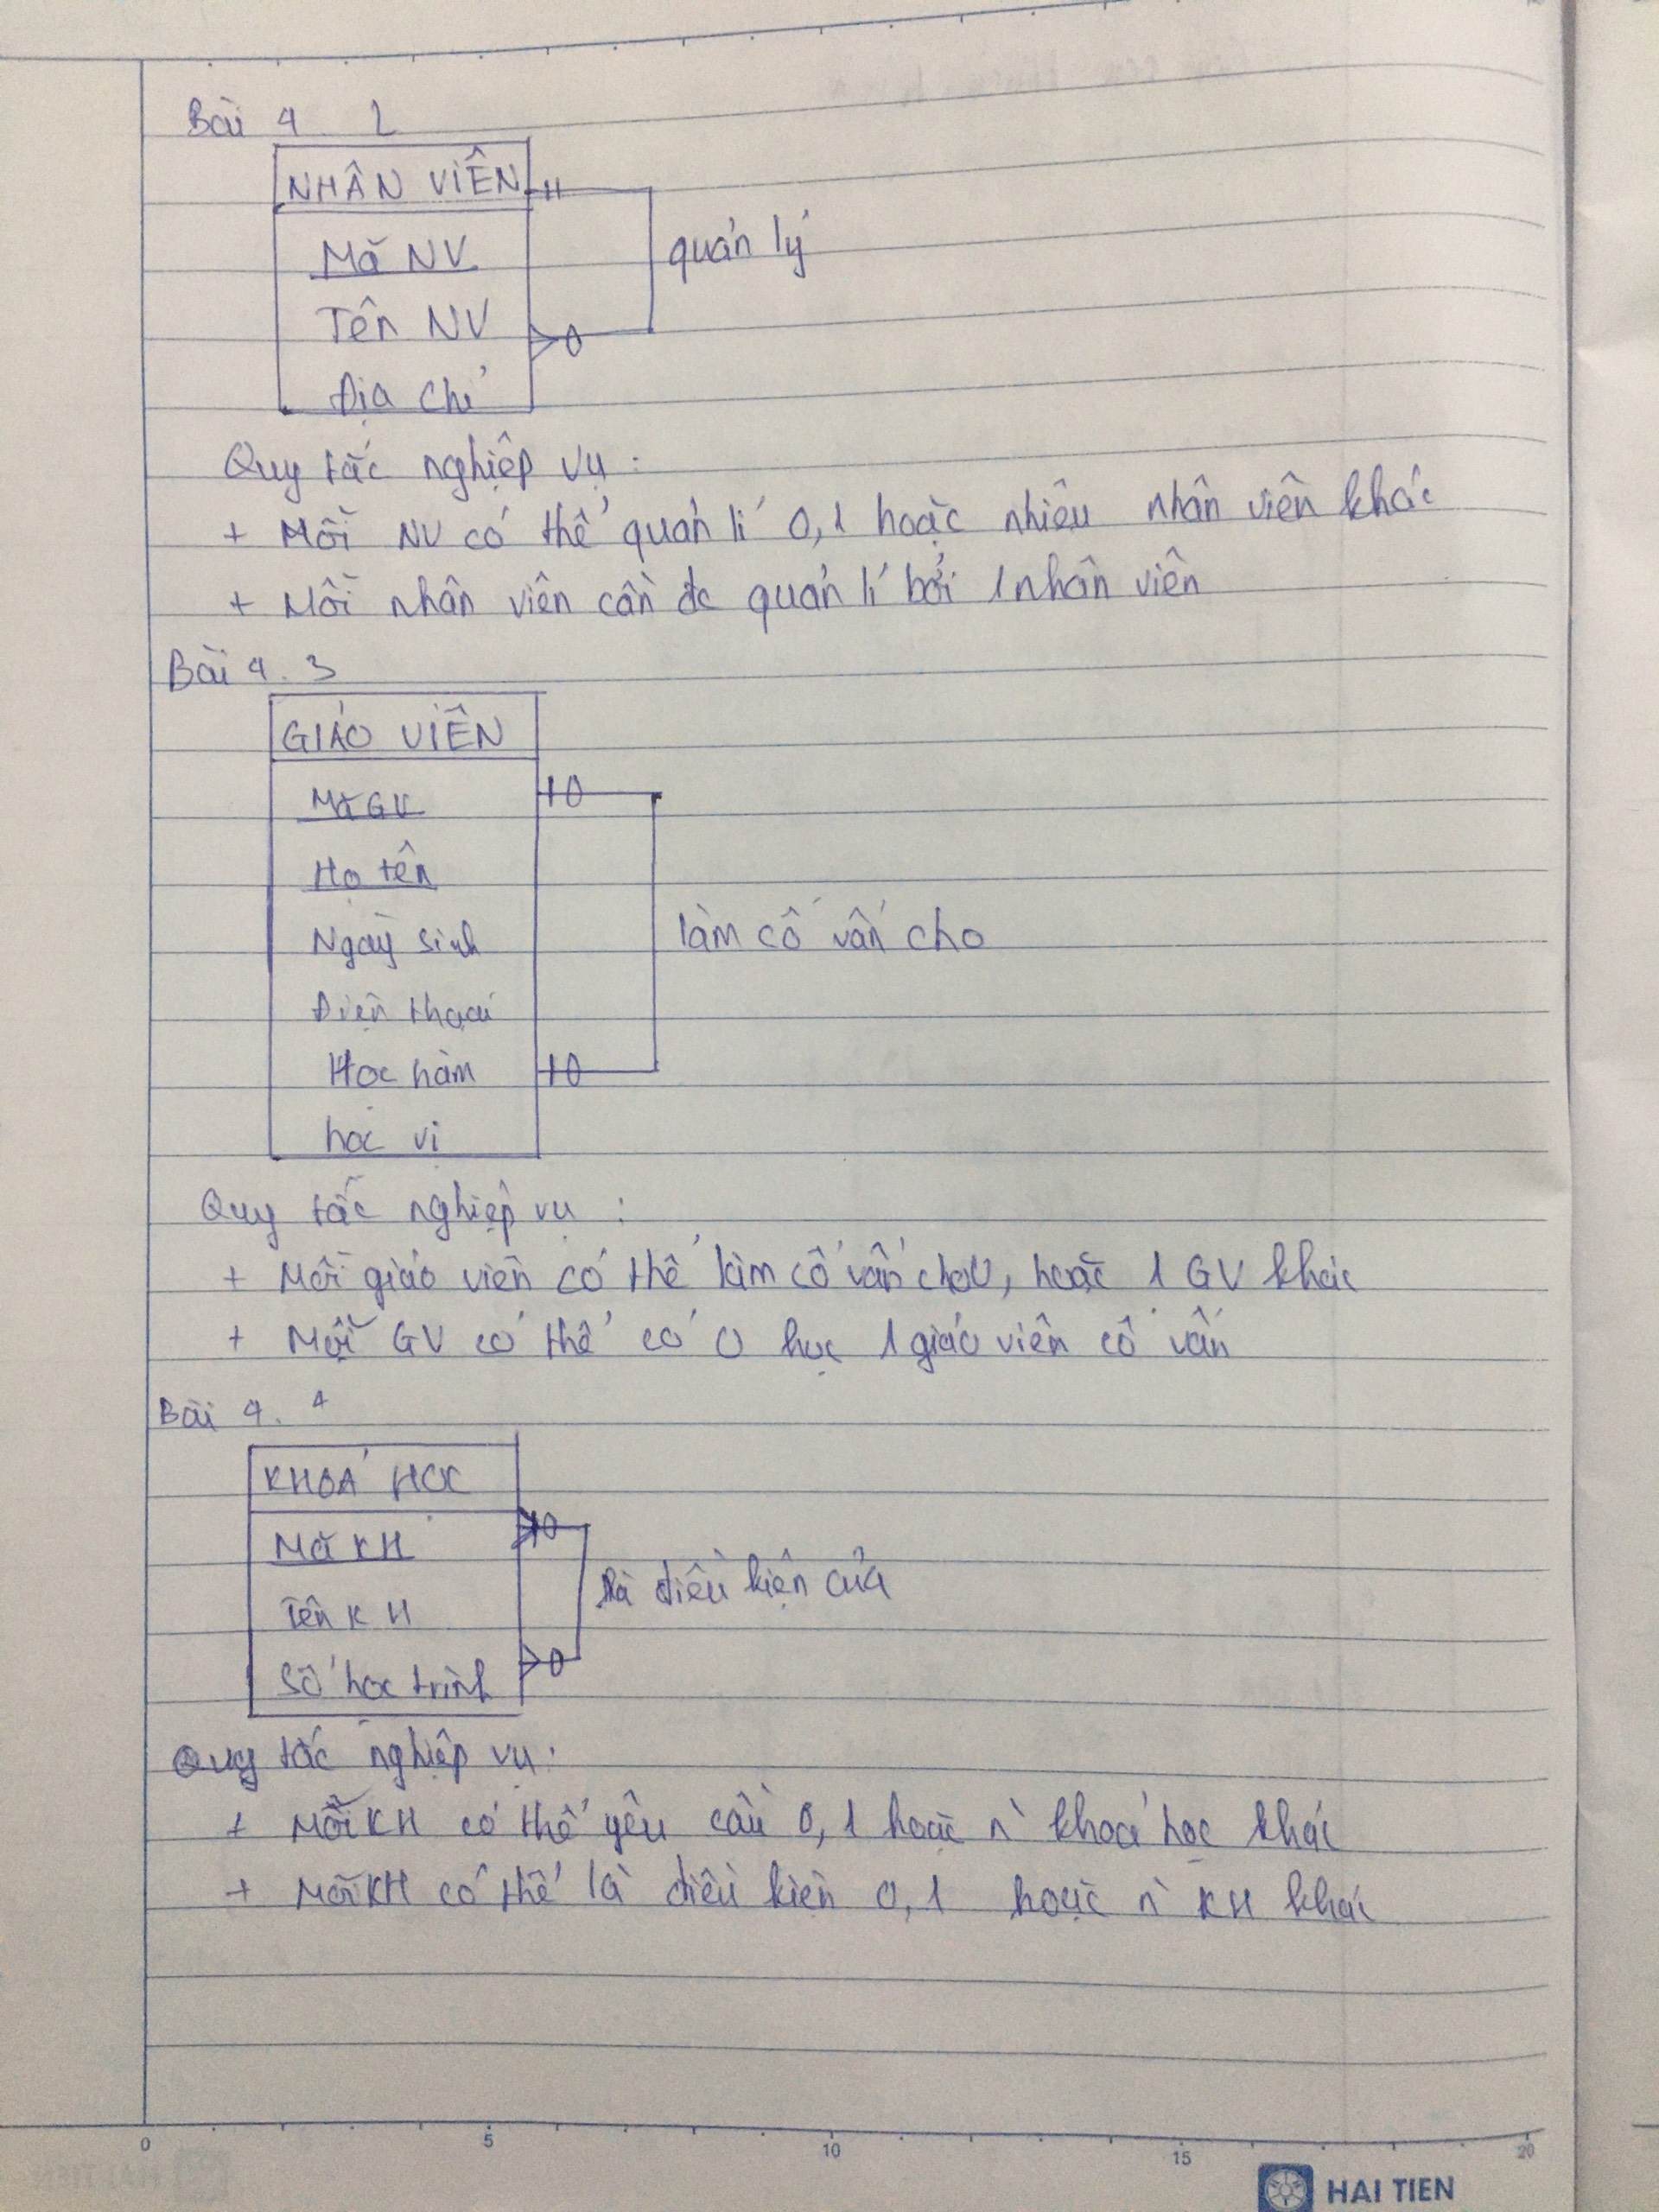 Bài 4 2
NHÂN VIÊN
Mã NV
Tên NV
Địa chỉ
quản lý
Quy tắc nghiệp vụ :
+ Mỗi NV có thể quản lí 0,1 hoặc nhiều nhân viên khác
+ Mỗi nhân viên cần đc quản lí bởi 1 nhân viên
Bài 4. 3
GIÁO VIÊN
Mã GV
Họ tên
Ngày sinh
Điện thoại
Học hàm
học vị
làm cố vấn cho
Quy tắc nghiệp vụ :
+ Mỗi giáo viên có thể làm cố vấn cho 0, hoặc 1 GV khác
+ Mỗi GV có thể có 0 hoặc 1 giáo viên cố vấn
Bài 4. 4
KHOÁ HỌC
Mã KH
Tên KH
Số học trình
là điều kiện của
Quy tắc nghiệp vụ :
+ Mỗi KH có thể yêu cầu 0,1 hoặc n` khoá học khác
+ Mỗi KH có thể là điều kiện 0,1 hoặc n` KH khác
0 5 10 15 20
HAI TIEN